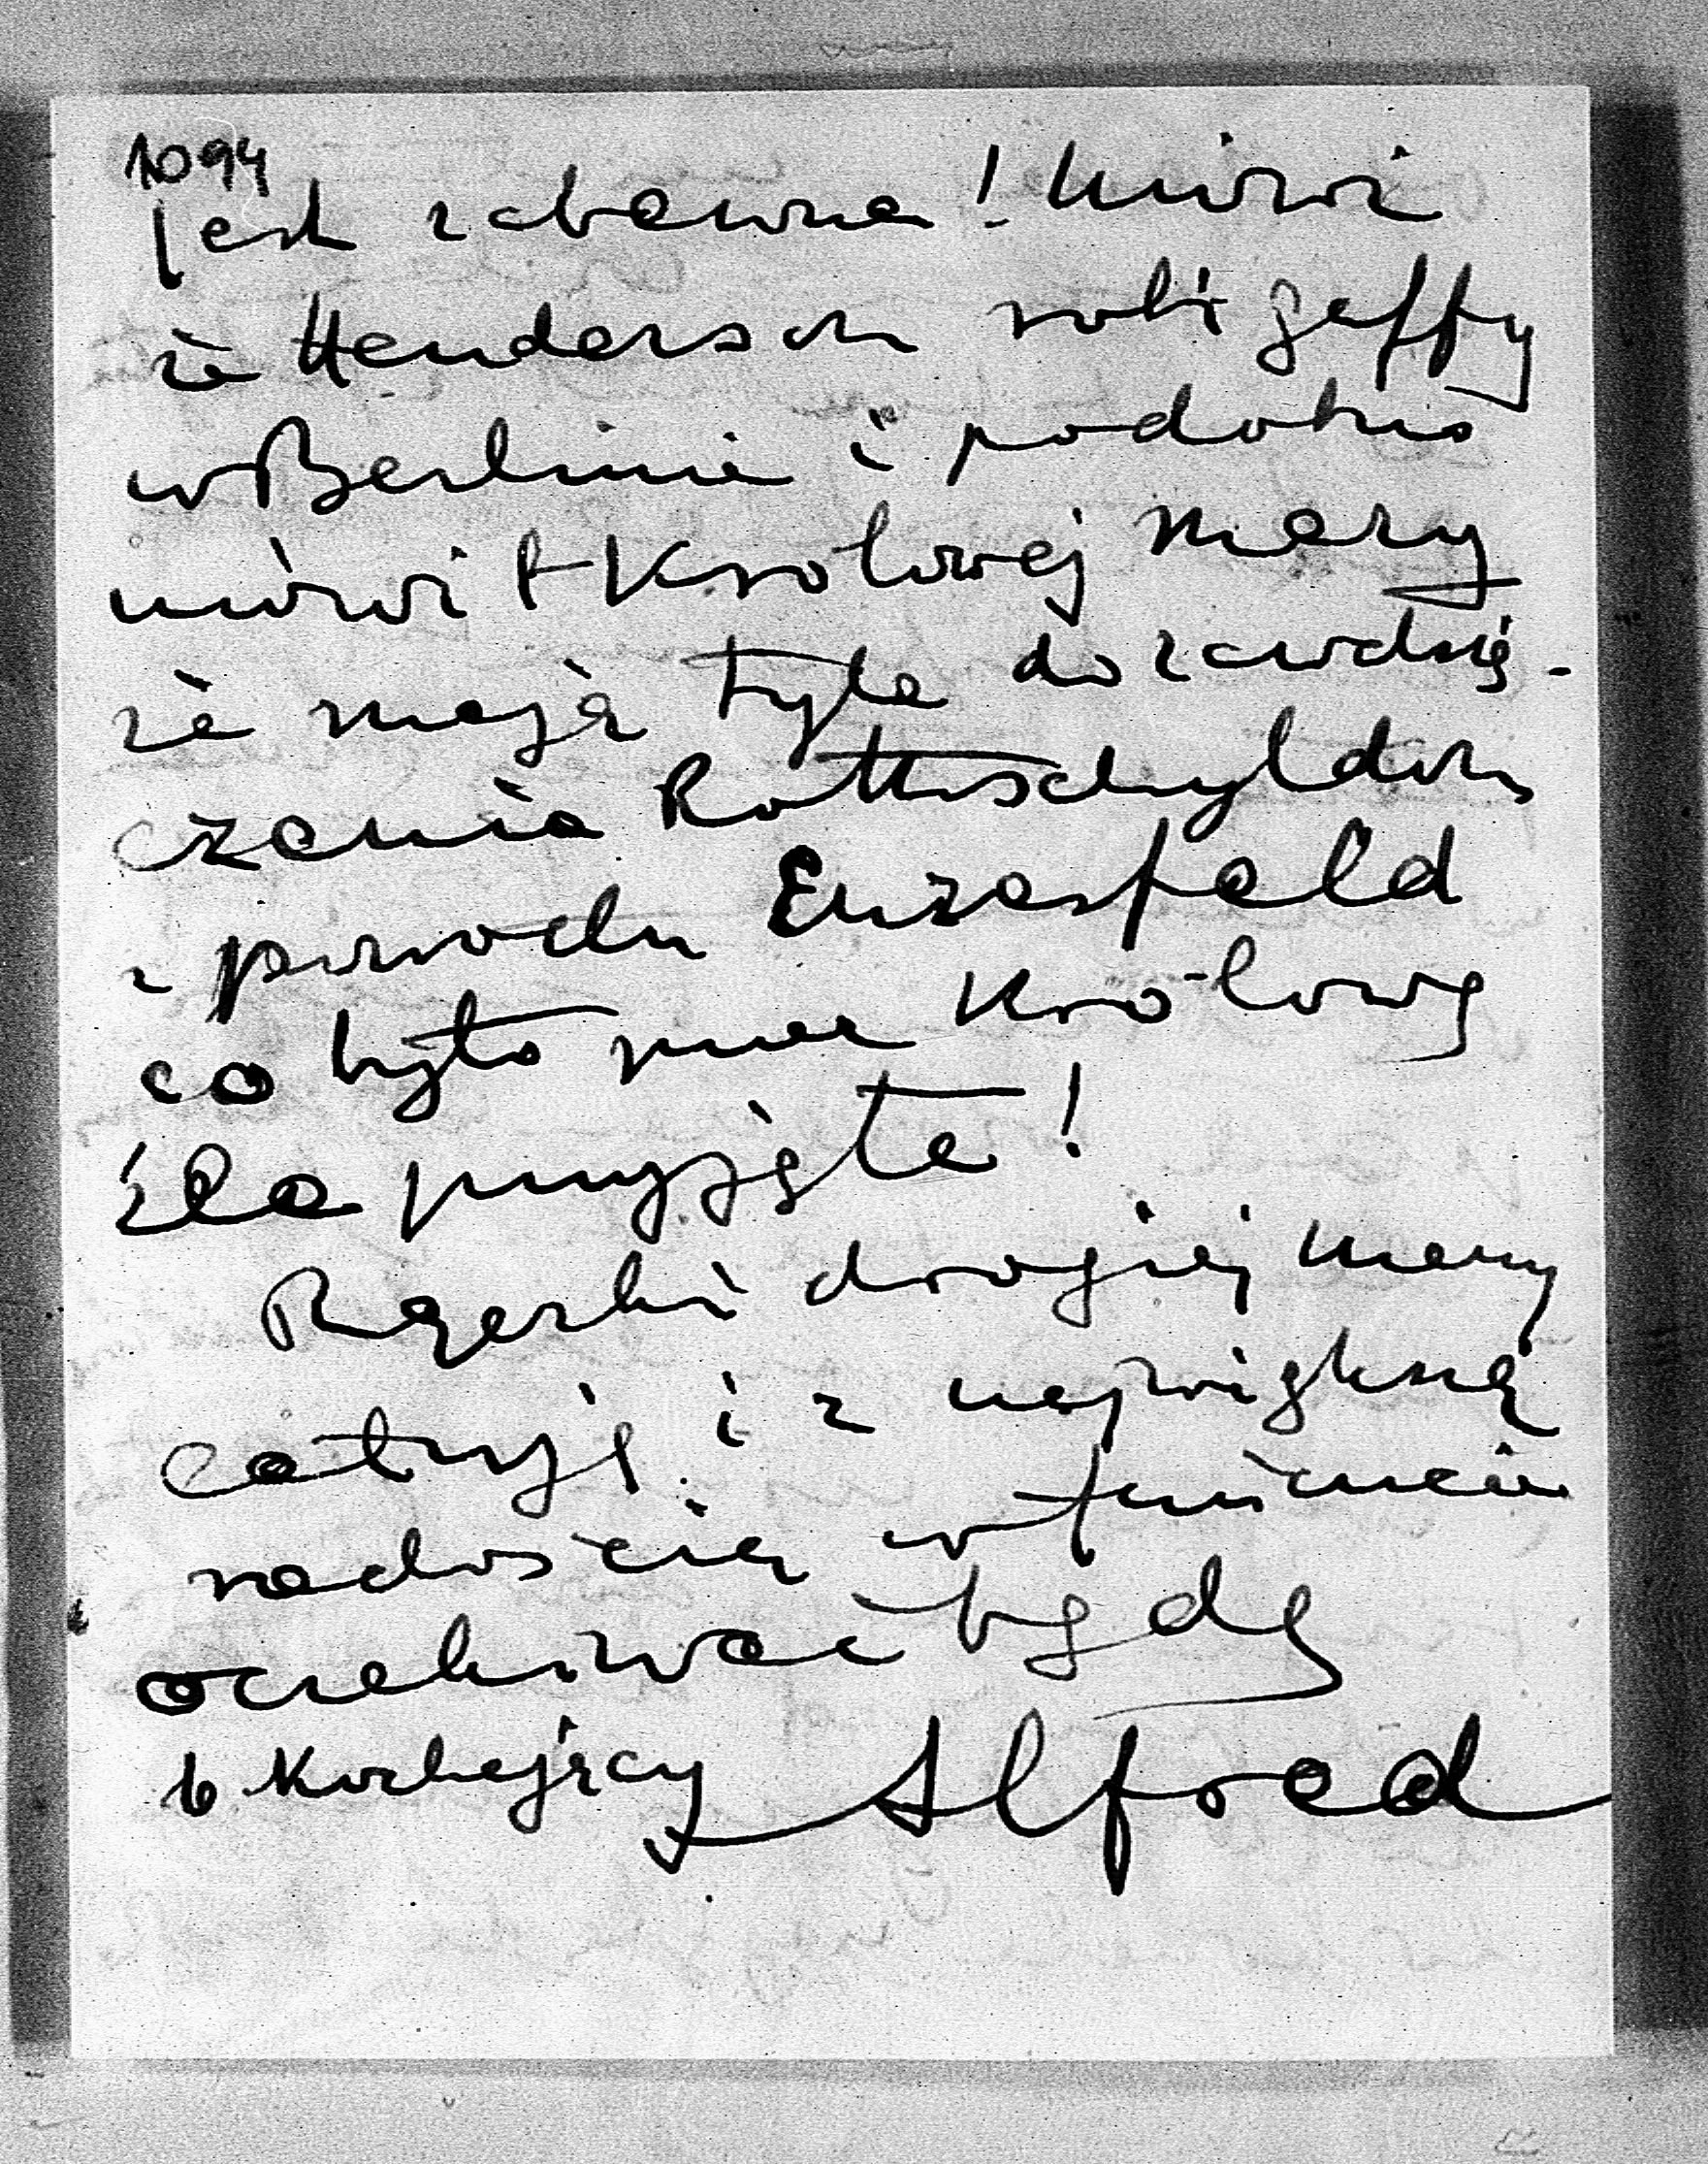 1094
jest zabawna! Mówi
że Henderson robi gaffy
w Berlinie i podobno
mówił Królowej Mary
że mają tyle do zawdzię-
czenia Rothschyldom
z powodu Enzesfeld
co było przez Królowę
źle przyjęte!
Rączki drogiej Mamy
całuję i z największą
radością w
oczekiwać będę
b. Kochający Alfred